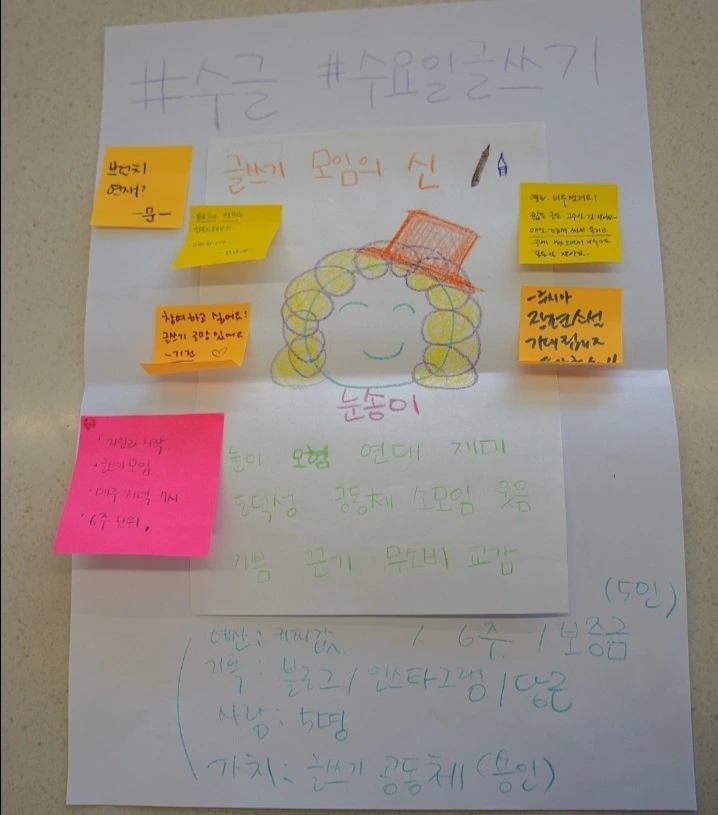 #수글 #수요일글쓰기
글쓰기 모임의 신
브런치
연재?
-문-
참여하고 싶어요!
글쓰기 로망 있어요
-기린 ♡
-루시아
장편소설
기대됩니다
눈송이
놀이 모험 연대 재미
도덕성 공동체 소모임 웃음
기쁨 끈기 무소비 교감
· 지원과 시작
· 글쓰기 모임
· 매주 저녁 7시
· 6주 단위.
(5인)
예산: 커피값 / 6주 / 보증금
기록: 블로그 / 인스타그램 / 당근
사람: 5명
가치: 글쓰기 공동체 (용인)